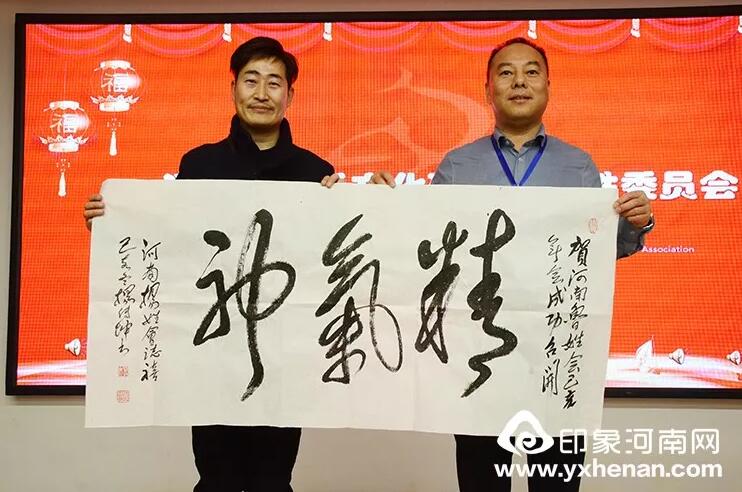 福
福
委员会
Association
賀河南魯姓会己亥
年会成功召開
精氣神
河南楊姓會誌禧
己亥
印象河南网
www.yxhenan.com